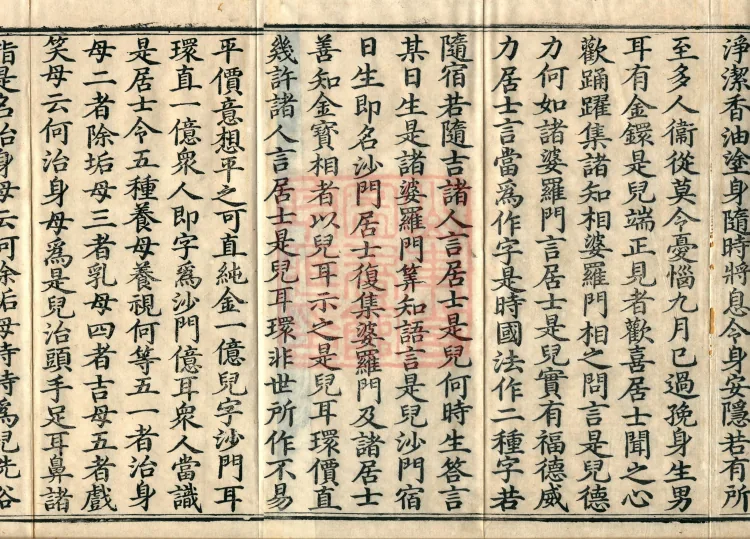 淨潔香油塗身隨時將息令身安隱若有所
至多人衞從莫令憂惱九月已過㝃身生男
耳有金鐶是兒端正見者歡喜居士聞之心
歡踊躍集諸知相婆羅門相之問言是兒德
力何如諸婆羅門言居士是兒實有福德威
力居士言當爲作字是時國法作二種字若
隨宿若隨吉諸人言居士是兒何時生答言
某日生是諸婆羅門算知語言是兒沙門宿
日生即名沙門居士復集婆羅門及諸居士
善知金寶相者以兒耳示之是兒耳環價直
幾許諸人言居士是兒耳環非世所作不易
平價意想平之可直純金一億兒字沙門耳
環直一億衆人即字爲沙門億耳衆人當識
是居士令五種養母養視何等五一者治身
母二者除垢母三者乳母四者吉母五者戲
笑母云何治身母爲是兒治頭手足耳鼻諸
指是名治身母云何除垢母時時爲兒洗浴